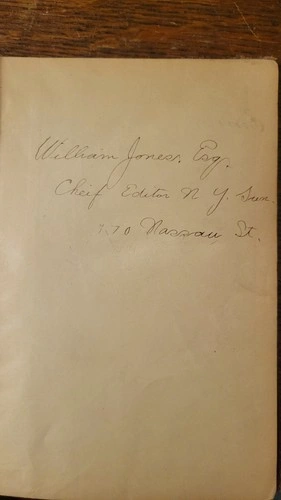 William Jones. Esq.
Cheif Editor N Y. Sun.
170 Nassau St.